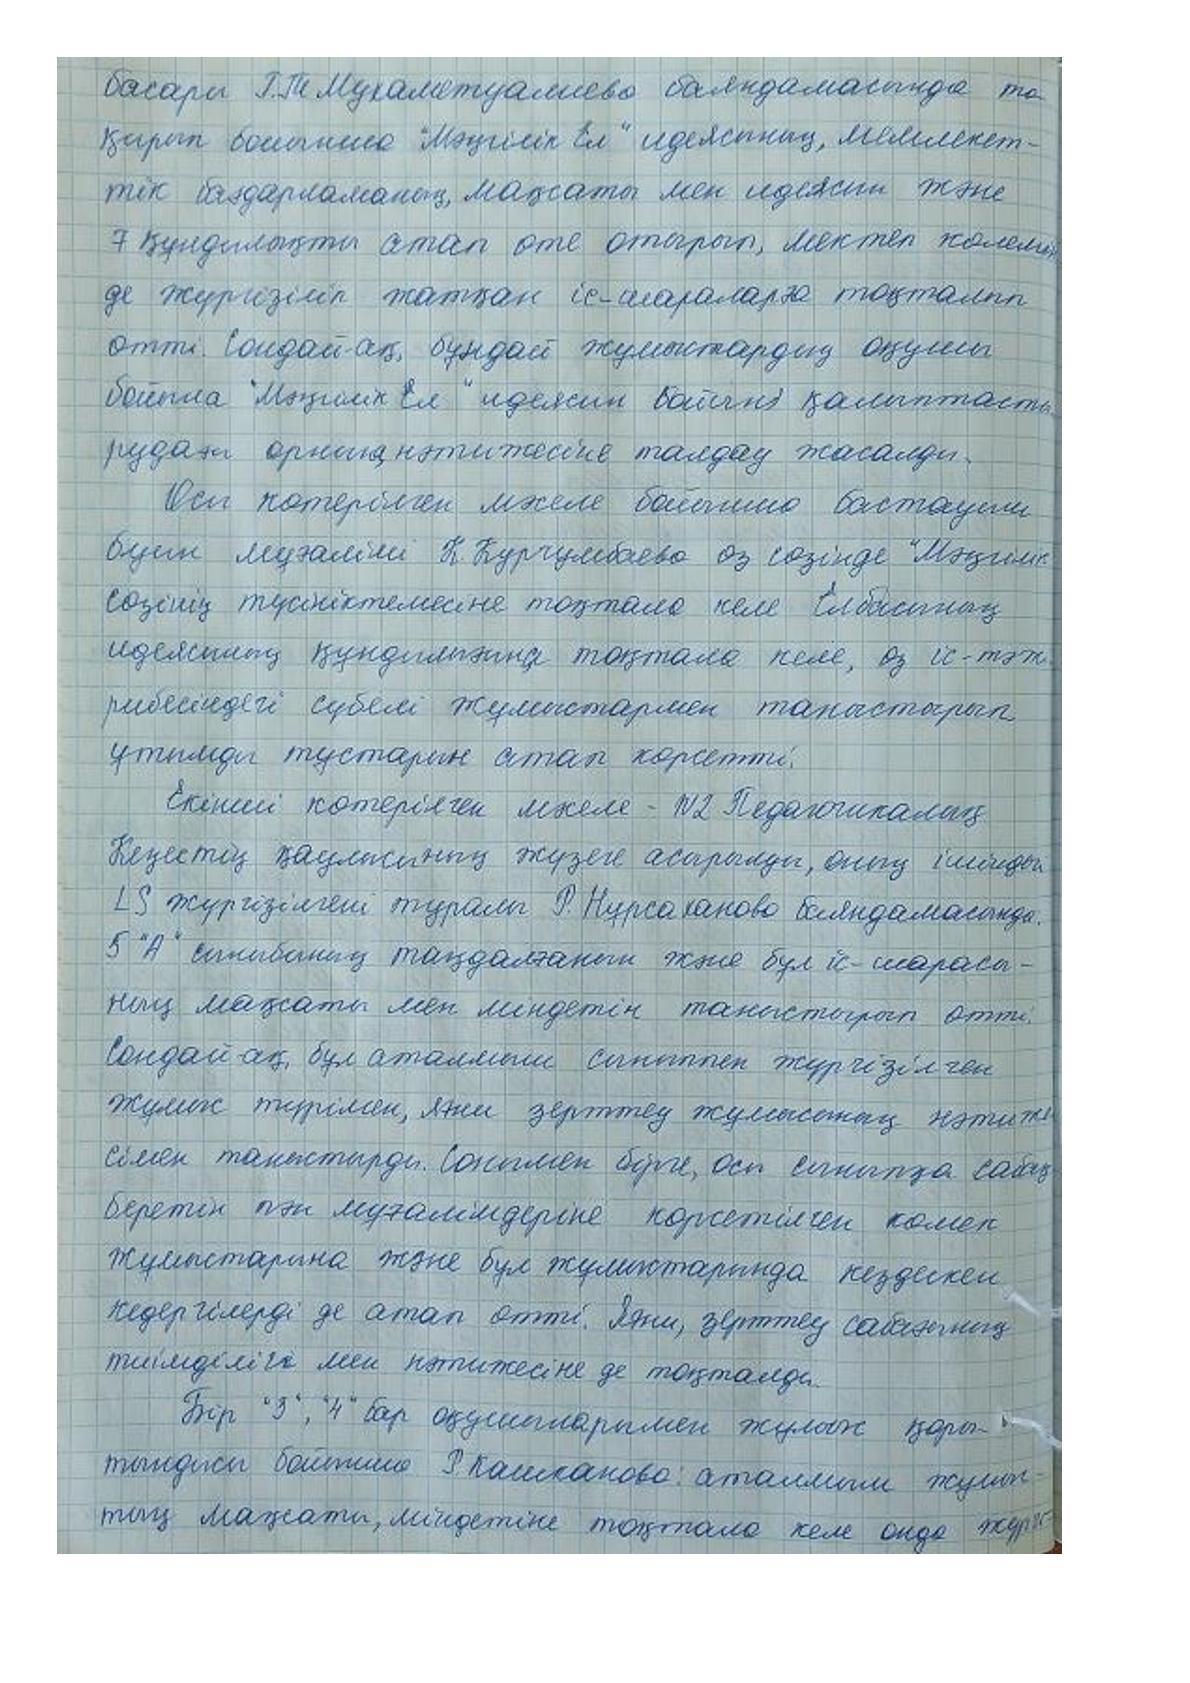 басары Г.Т Мухаметуалиева баяндамасында та
қырып бойынша "Мәңгілік Ел" идеясының, мемлекет-
тік бағдарламаның, мақсаты мен идеясын және
7 құндылықты атап өте отырып, мектеп көлемін
де жүргізіліп жатқан іс-шараларға тоқталып
өтті. Сондай-ақ, бұндай жұмыстардың оқушы
бойына "Мәңгілік Ел" идеясын бойына қалыптасты
рудағы орнын, нәтижесіне талдау жасалды.
Осы көтерілген мәселе бойынша бастауыш
буын мұғалімі К.Курчумбаева өз сөзінде "Мәңгілік
сөзінің түсініктемесіне тоқтала келе Елбасының
идеясының құндылығына тоқтала келе, өз іс-тәж
рибесіндегі сүбелі жұмыстармен таныстырып
ұтымды тұстарын атап көрсетті.
Екінші көтерілген мәселе - №2 Педагогикалық
Кеңестің қаулысының жүзеге асырылды, оның ішінде
LS жүргізілгені туралы Р. Нұрсаханова баяндамасында.
5 "А" сыныбының таңдалғанын және бұл іс-шарасы-
ның мақсаты мен міндетін таныстырып өтті.
Сондай-ақ, бұл аталмыш сыныппен жүргізілген
жұмыс түрімен, яғни зерттеу жұмысының нәтиже
сімен таныстырды. Сонымен бірге, осы сыныпқа сабақ
беретін пән мұғалімдеріне көрсетілген көмек
жұмыстарына және бұл жұмыстарында кездескен
кедергілерді де атап өтті. Яғни, зерттеу сабағының
тиімділігі мен нәтижесіне де тоқталды.
Бір "3", "4" бар оқушыларымен жұмыс қоры-
тындысы бойынша Р Кашканова: аталмыш жұмыс-
тың мақсаты, міндетіне тоқтала келе онда жүргі-